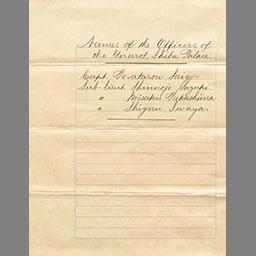 Names of the Officers of
the Guard, Shiba Palace.
Capt. Totarow Saigo
Sub-lieut Shinnojo Suzuki
" Misaku Takashima
" Shigeru Iwaya.